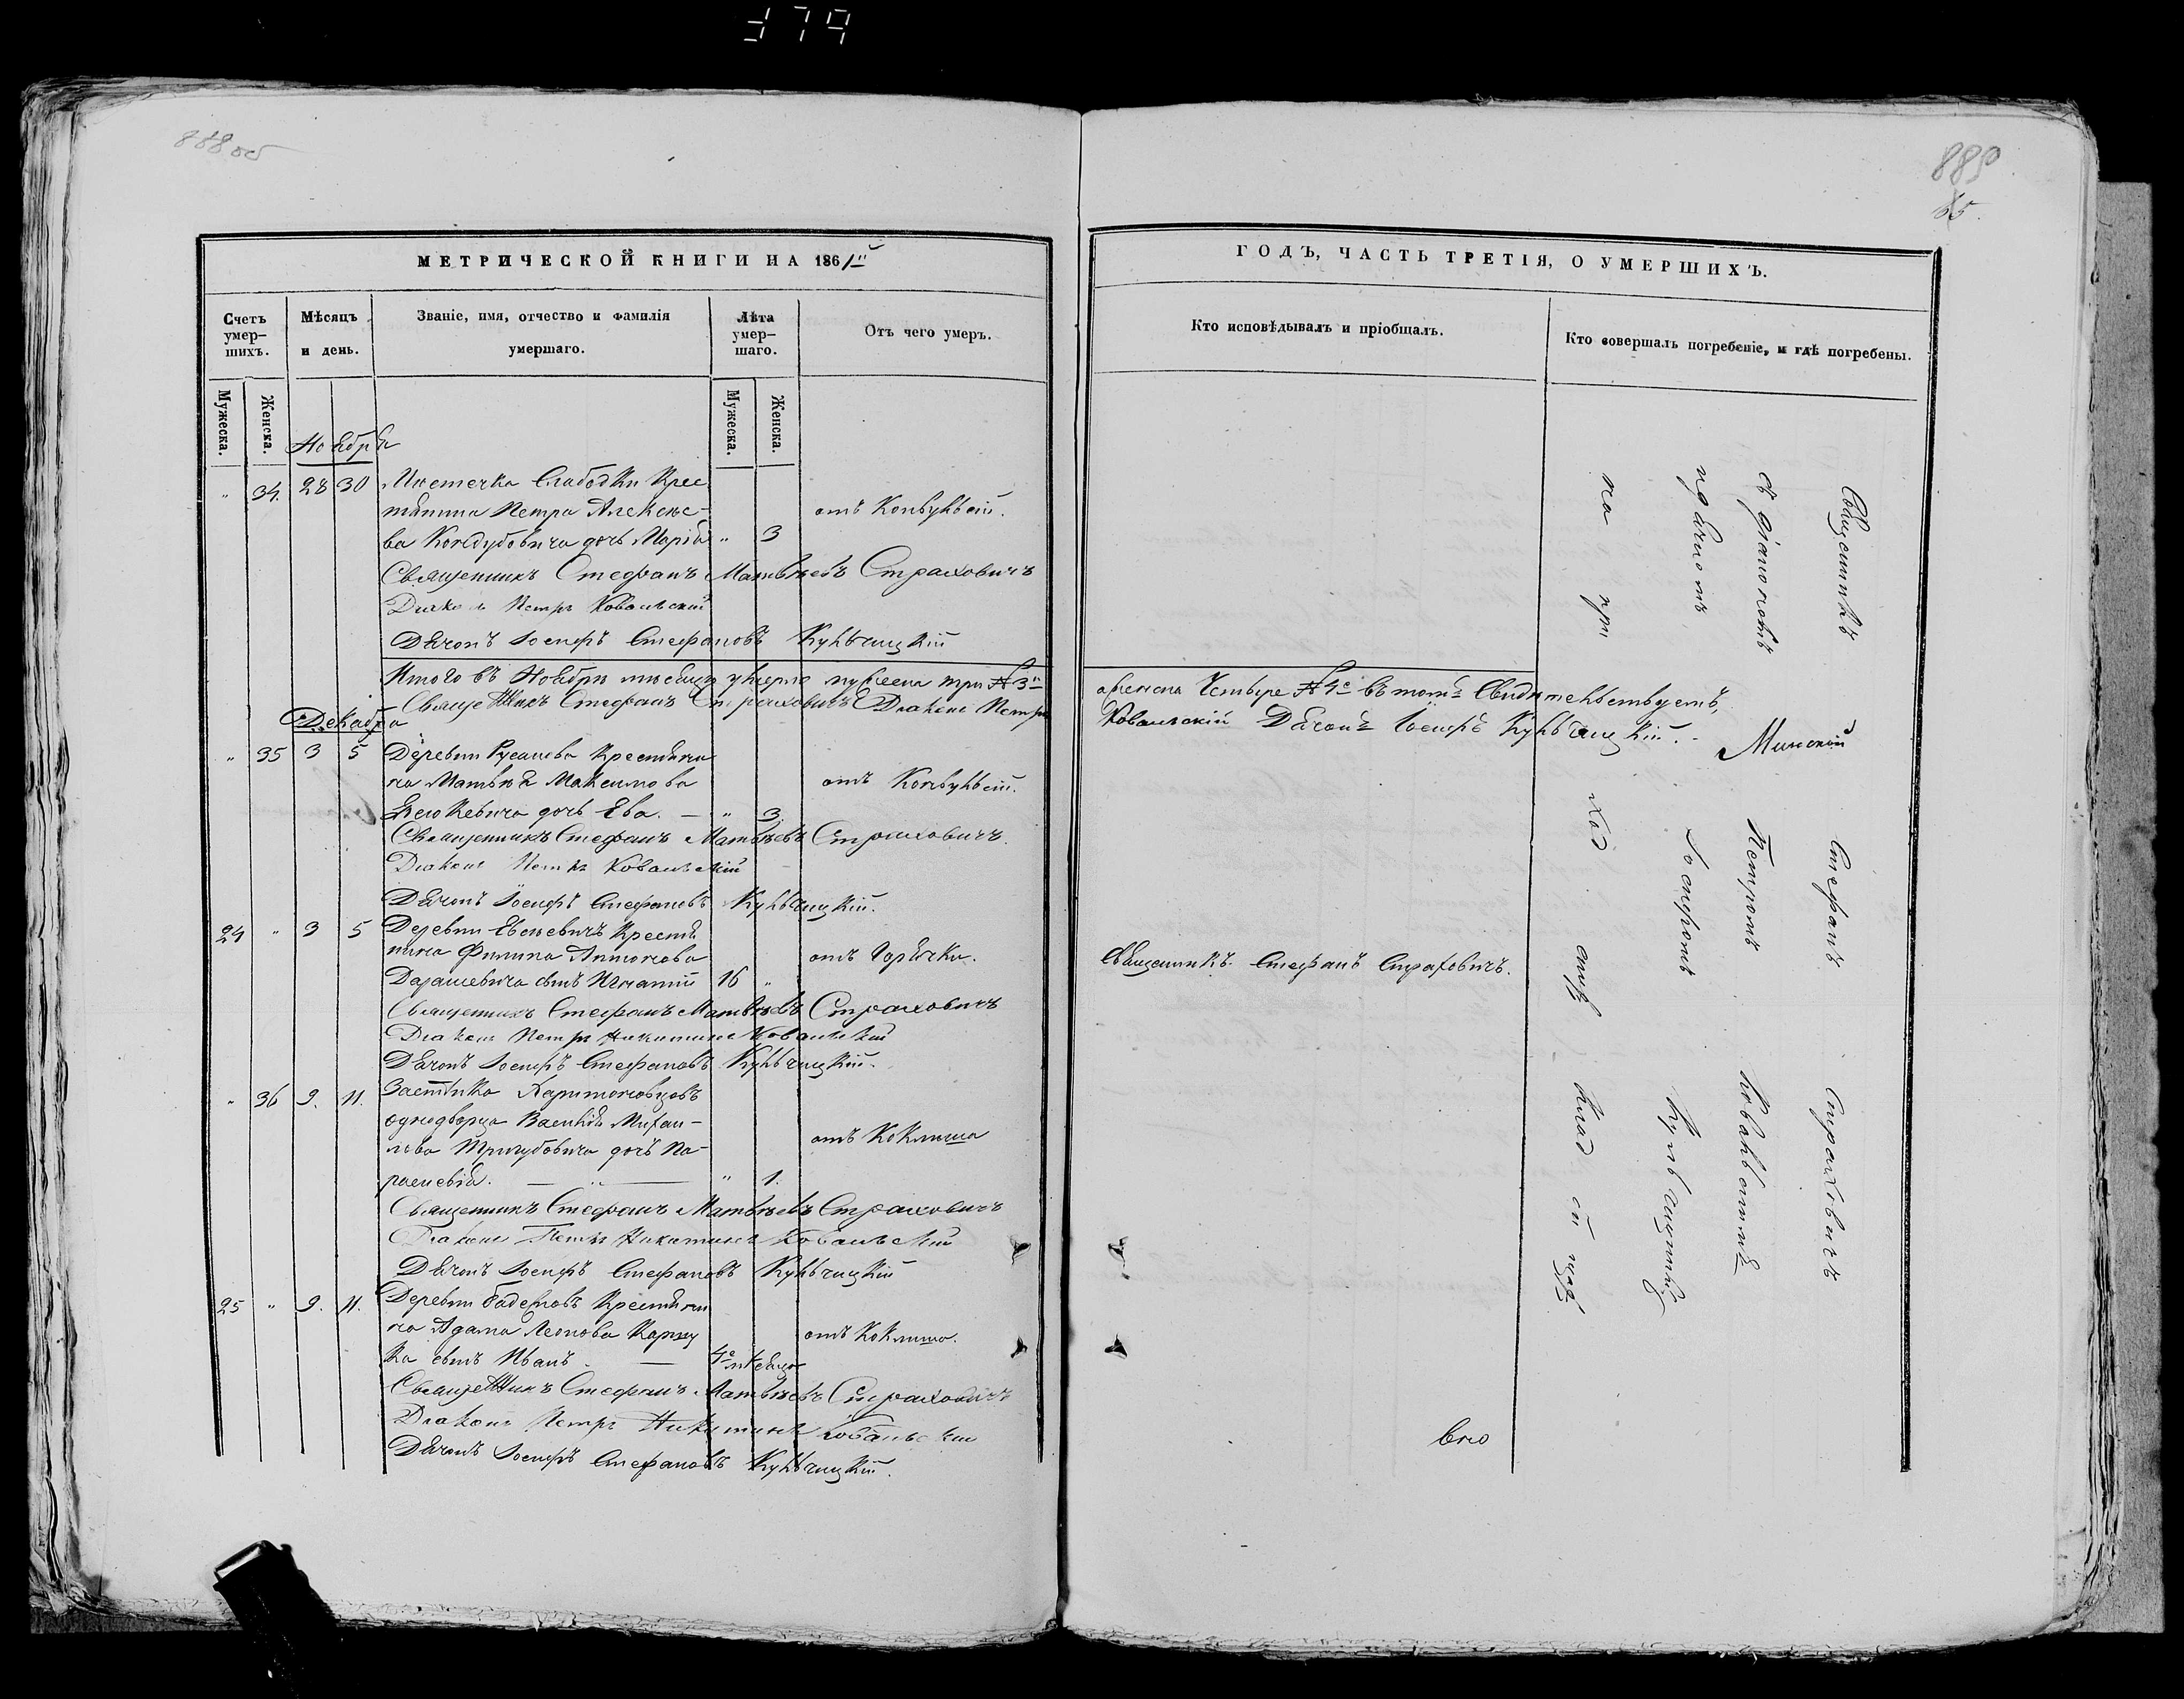 379
888 об
889
65.
МЕТРИЧЕСКОЙ КНИГИ НА 1861й
ГОДЪ, ЧАСТЬ ТРЕТІЯ, О УМЕРШИХЪ.
Счетъ умер-шихъ.
Мѣсяцъ и день.
Званіе, имя, отчество и фамилія умершаго.
Лѣта умер-шаго.
Отъ чего умеръ.
Кто исповѣдывалъ и пріобщалъ.
Кто совершалъ погребеніе, и гдѣ погребены.
Мужеска.
Женска.
Мужеска.
Женска.
Ноября
" 34. 28 30 Мѣстечка Слабодки Крес
тянина Петра Алексѣе- отъ Конвульсій.
ва Кондубовича дочь Марія " 3
Священникъ Стефанъ Матвѣевъ Страховичъ
Диаконъ Петръ Ковальскій
Дячокъ Іосифъ Стефановъ Кульчицкій
Итого въ Ноябрѣ мѣсяцѣ умерло мужеска три №3й
Священникъ Стефанъ Страховичъ Диаконъ Петръ
а женска Четыре №4е въ томъ Свидѣтельствуемъ,
Ковальскій Дячокъ Іосифъ Кульчицкій.
Декабря
" 35 3 5 Деревни Русачева Крестяни
на Матвѣя Максимова отъ Конвульсій.
дочь Ева. — " 3.
Священникъ Стефанъ Матвѣевъ Страховичъ.
Диаконъ Петръ Ковальскій
Дячокъ Іосифъ Стефановъ Кульчицкій.
24 " 3 5 Деревни Евсевичъ Крестя
нина Филипа Антонова отъ Горячки.
Дарашевича сынъ Игнатій 16 "
Священникъ Стефанъ Страховичъ.
Священникъ Стефанъ Матвѣевъ Страховичъ
Диаконъ Петръ Никитинъ Ковальскій
Дячокъ Іосифъ Стефановъ Кульчицкій.
" 36 9. 11. Застѣнка Харитоновцовъ
однодворца Василія Михаи-
лова Тризубовича дочь Па- отъ Коклюша
раскевія. — " — " 1.
Священникъ Стефанъ Матвѣевъ Страховичъ
Диаконъ Петръ Никитинъ Ковальскій
Дячокъ Іосифъ Стефановъ Кульчицкій
25 " 9. 11. Деревни Крестяни
на Адама Леонова отъ Коклюша.
ка сынъ Иванъ. — 4е мѣсяца
Священникъ Стефанъ Матвѣевъ Страховичъ
Диаконъ Петръ Никитинъ Ковальскій
Дячокъ Іосифъ Стефановъ Кульчицкій.
Священникъ Стефанъ Страховичъ
съ діакономъ Петромъ Ковальскимъ
Іосифомъ Кульчицкимъ
на при ход